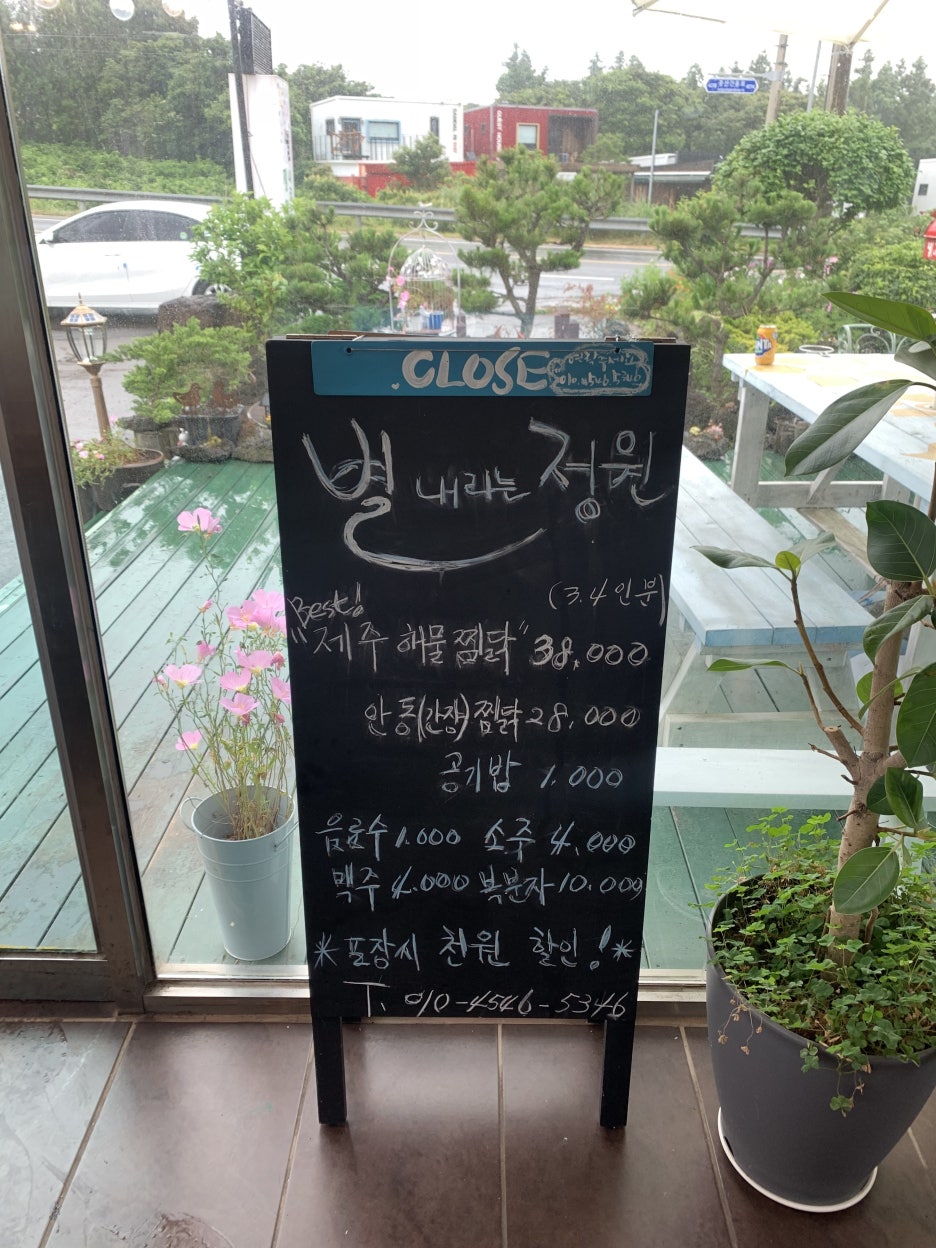 CLOSE 연락주세요
010.4546.5346
별 내리는 정원
Best! (3.4인분)
"제주 해물찜닭" 38,000
안동(간장)찜닭 28,000
공기밥 1.000
음료수 1.000 소주 4,000
맥주 4.000 복분자 10.000
*포장시 천원 할인!*
T. 010-4546-5346